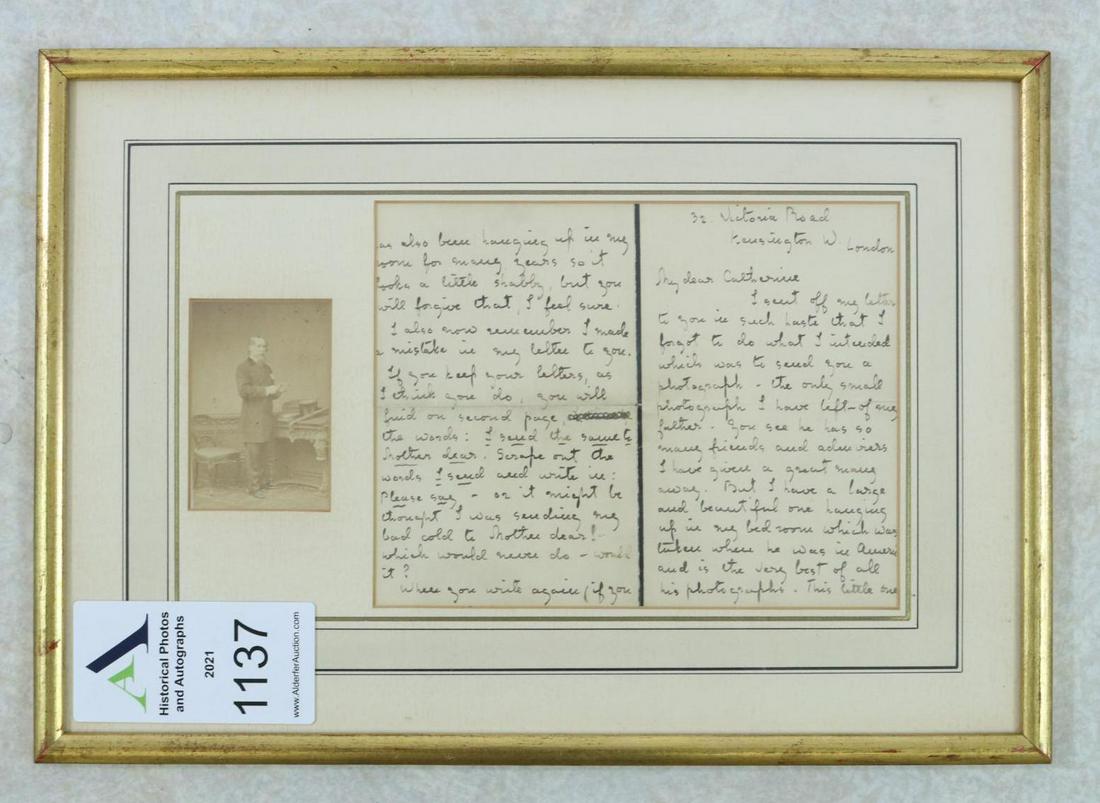 32 Victoria Road
Kensington W. London
My dear Catherine
I sent off my letter
to you in such haste that I
forgot to do what I intended
which was to send you a
photograph - the only small
photograph I have left - of my
father. You see he has so
many friends and admirers
I have given a great many
away. But I have a large
and beautiful one hanging
up in my bedroom which was
taken when he was in Ameri
and is the very best of all
his photographs. This little one
as also been hanging up in my
room for many years so it
looks a little shabby, but you
will forgive that, I feel sure.
I also now remember I made
a mistake in my letter to you.
If you keep your letters, as
I think you do, you will
find on second page,
the words: I send the same to
Mother dear. Scrape out the
words I send and write in:
Please say - or it might be
thought I was sending my
bad cold to Mother dear! -
which would never do - would
it?
When you write again (if you
Historical Photos
and Autographs
2021
1137
www.AlderferAuction.com